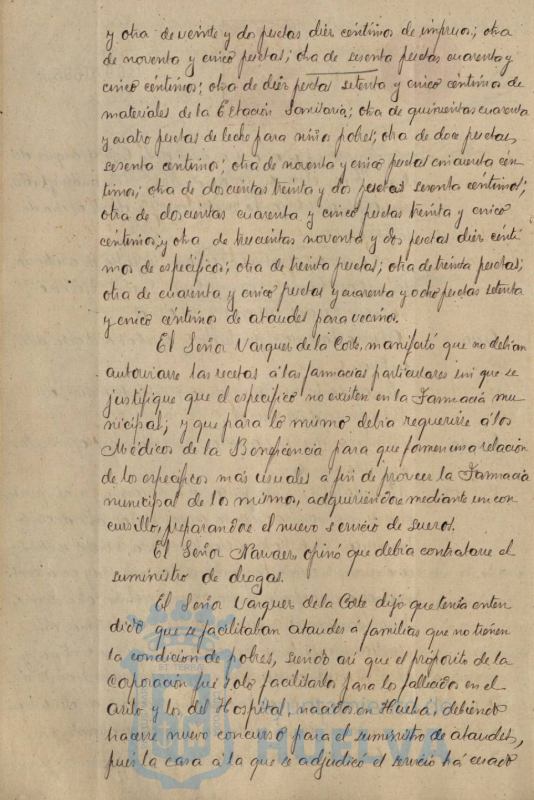 y otra de veinte y dos pesetas diez centimos de impresos; otra
de noventa y cinco pesetas; otra de sesenta pesetas cuarenta y
cinco centimos; otra de diez pesetas setenta y cinco centimos de
materiales de la Estación Sanitaria; otra de quinientas cuarenta
y cuatro pesetas de leche para niños pobres; otra de doce pesetas
sesenta centimos; otra de noventa y cinco pesetas cincuenta cen-
timos; otra de doscientas treinta y dos pesetas sesenta centimos;
otra de doscientas cuarenta y cinco pesetas treinta y cinco
centimos; y otra de trescientas noventa y dos pesetas diez centi-
mos de específicos; otra de treinta pesetas; otra de treinta pesetas;
otra de cuarenta y cinco pesetas y cuarenta y ocho pesetas setenta
y cinco centimos de ataudes para vecinos.
El Señor Vazquez de la Corte, manifestó que no debian
autorizarse las recetas á las farmacias particulares sin que se
justifique que el específico no existen en la Farmacia mu-
nicipal; y que para lo mismo debia requerirse á los
Médicos de la Beneficencia para que formen una relación
de los específicos más usuales a fin de proveer la Farmacia
municipal de los mismos, adquiriéndose mediante un con-
cursillo, preparandose el nuevo servicio de sueros.
El Señor Narvaez opinó que debria contratarse el
suministro de drogas.
El Señor Vazquez de la Corte dijo que tenia enten-
dido que se facilitaban ataudes á familias que no tienen
la condición de pobres, siendo asi que el propósito de la
Corporación fué solo facilitarlos para los fallecidos en el
asilo y los del Hospital, nacidos en Huelva, debiendo
hacerse nuevo concurso para el suministro de ataudes,
pues la casa a la que se adjudicó el servicio há cesado
HUELVA